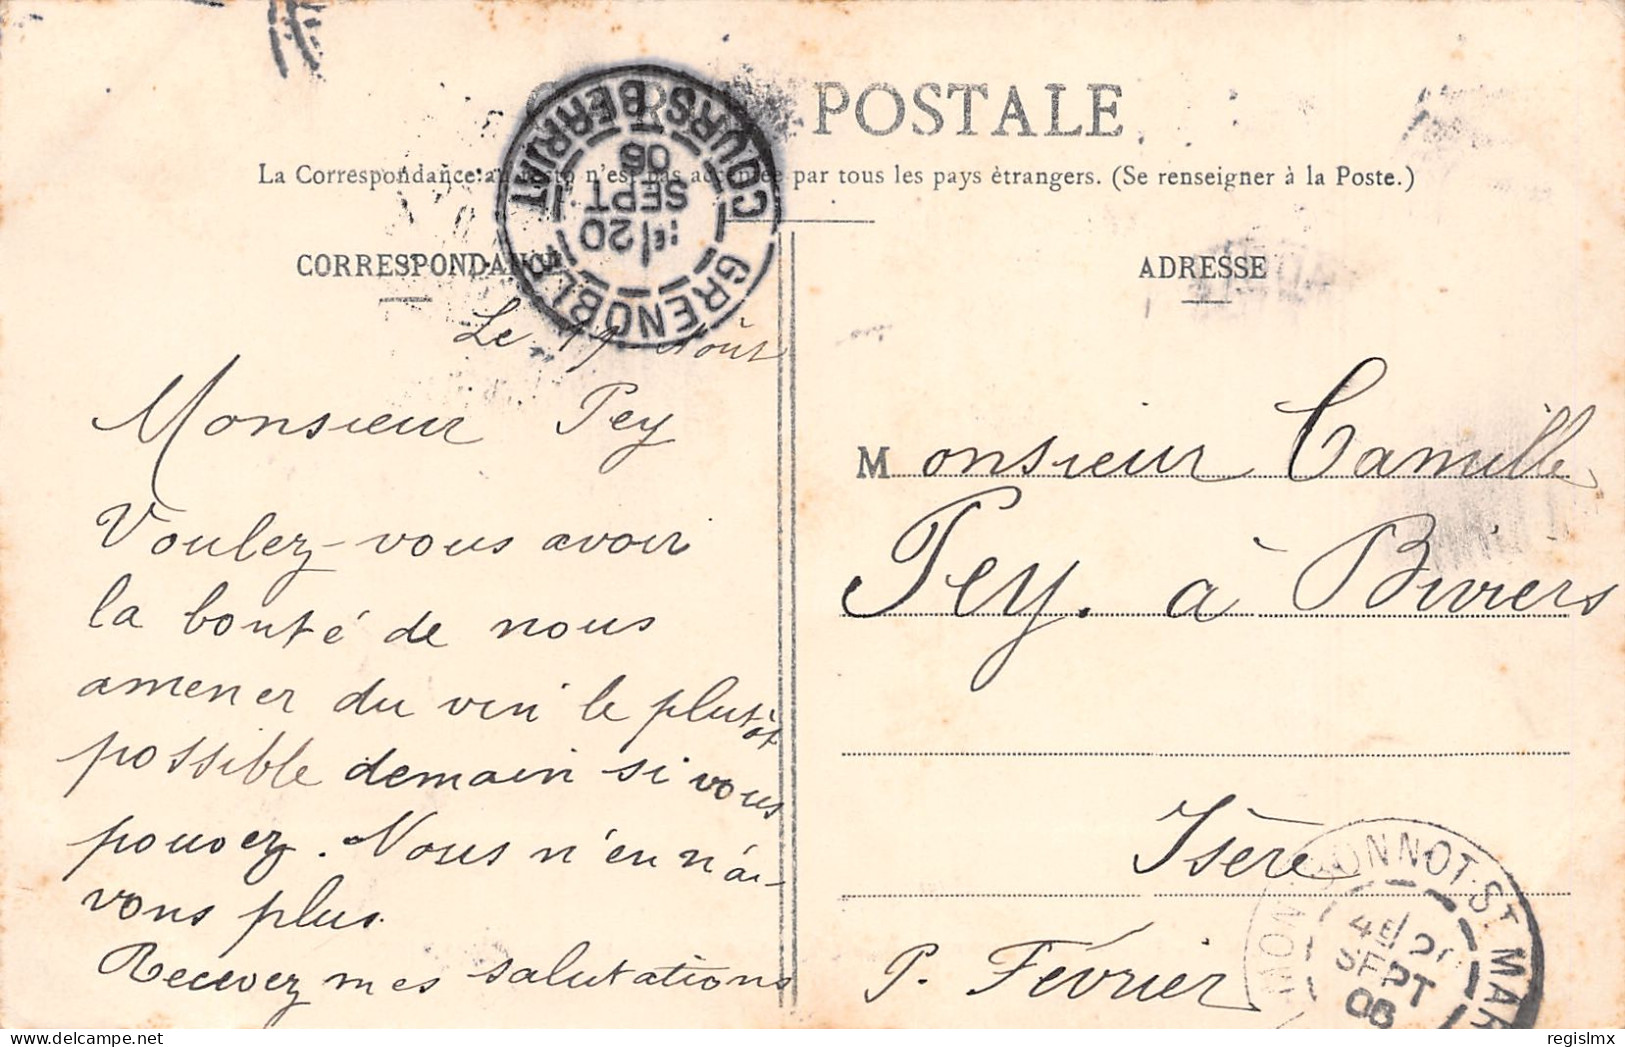 POSTALE
La Correspondance au recto n'est pas acceptée par tous les pays étrangers. (Se renseigner à la Poste.)
CORRESPONDANCE
ADRESSE
GRENOBLE COURS BERRIAT
20
SEPT
06
Le 19 Août
Monsieur Pey
Voulez-vous avoir
la bonté de nous
amener du vin le plutôt
possible demain si vous
pouvez. Nous n'en n'a-
vons plus.
Recevez mes salutations
P. Février
Monsieur Camille
Pey. à Biviers
Isère
MONTBONNOT-ST MAR
SEPT
06
regislmx
delcampe.net